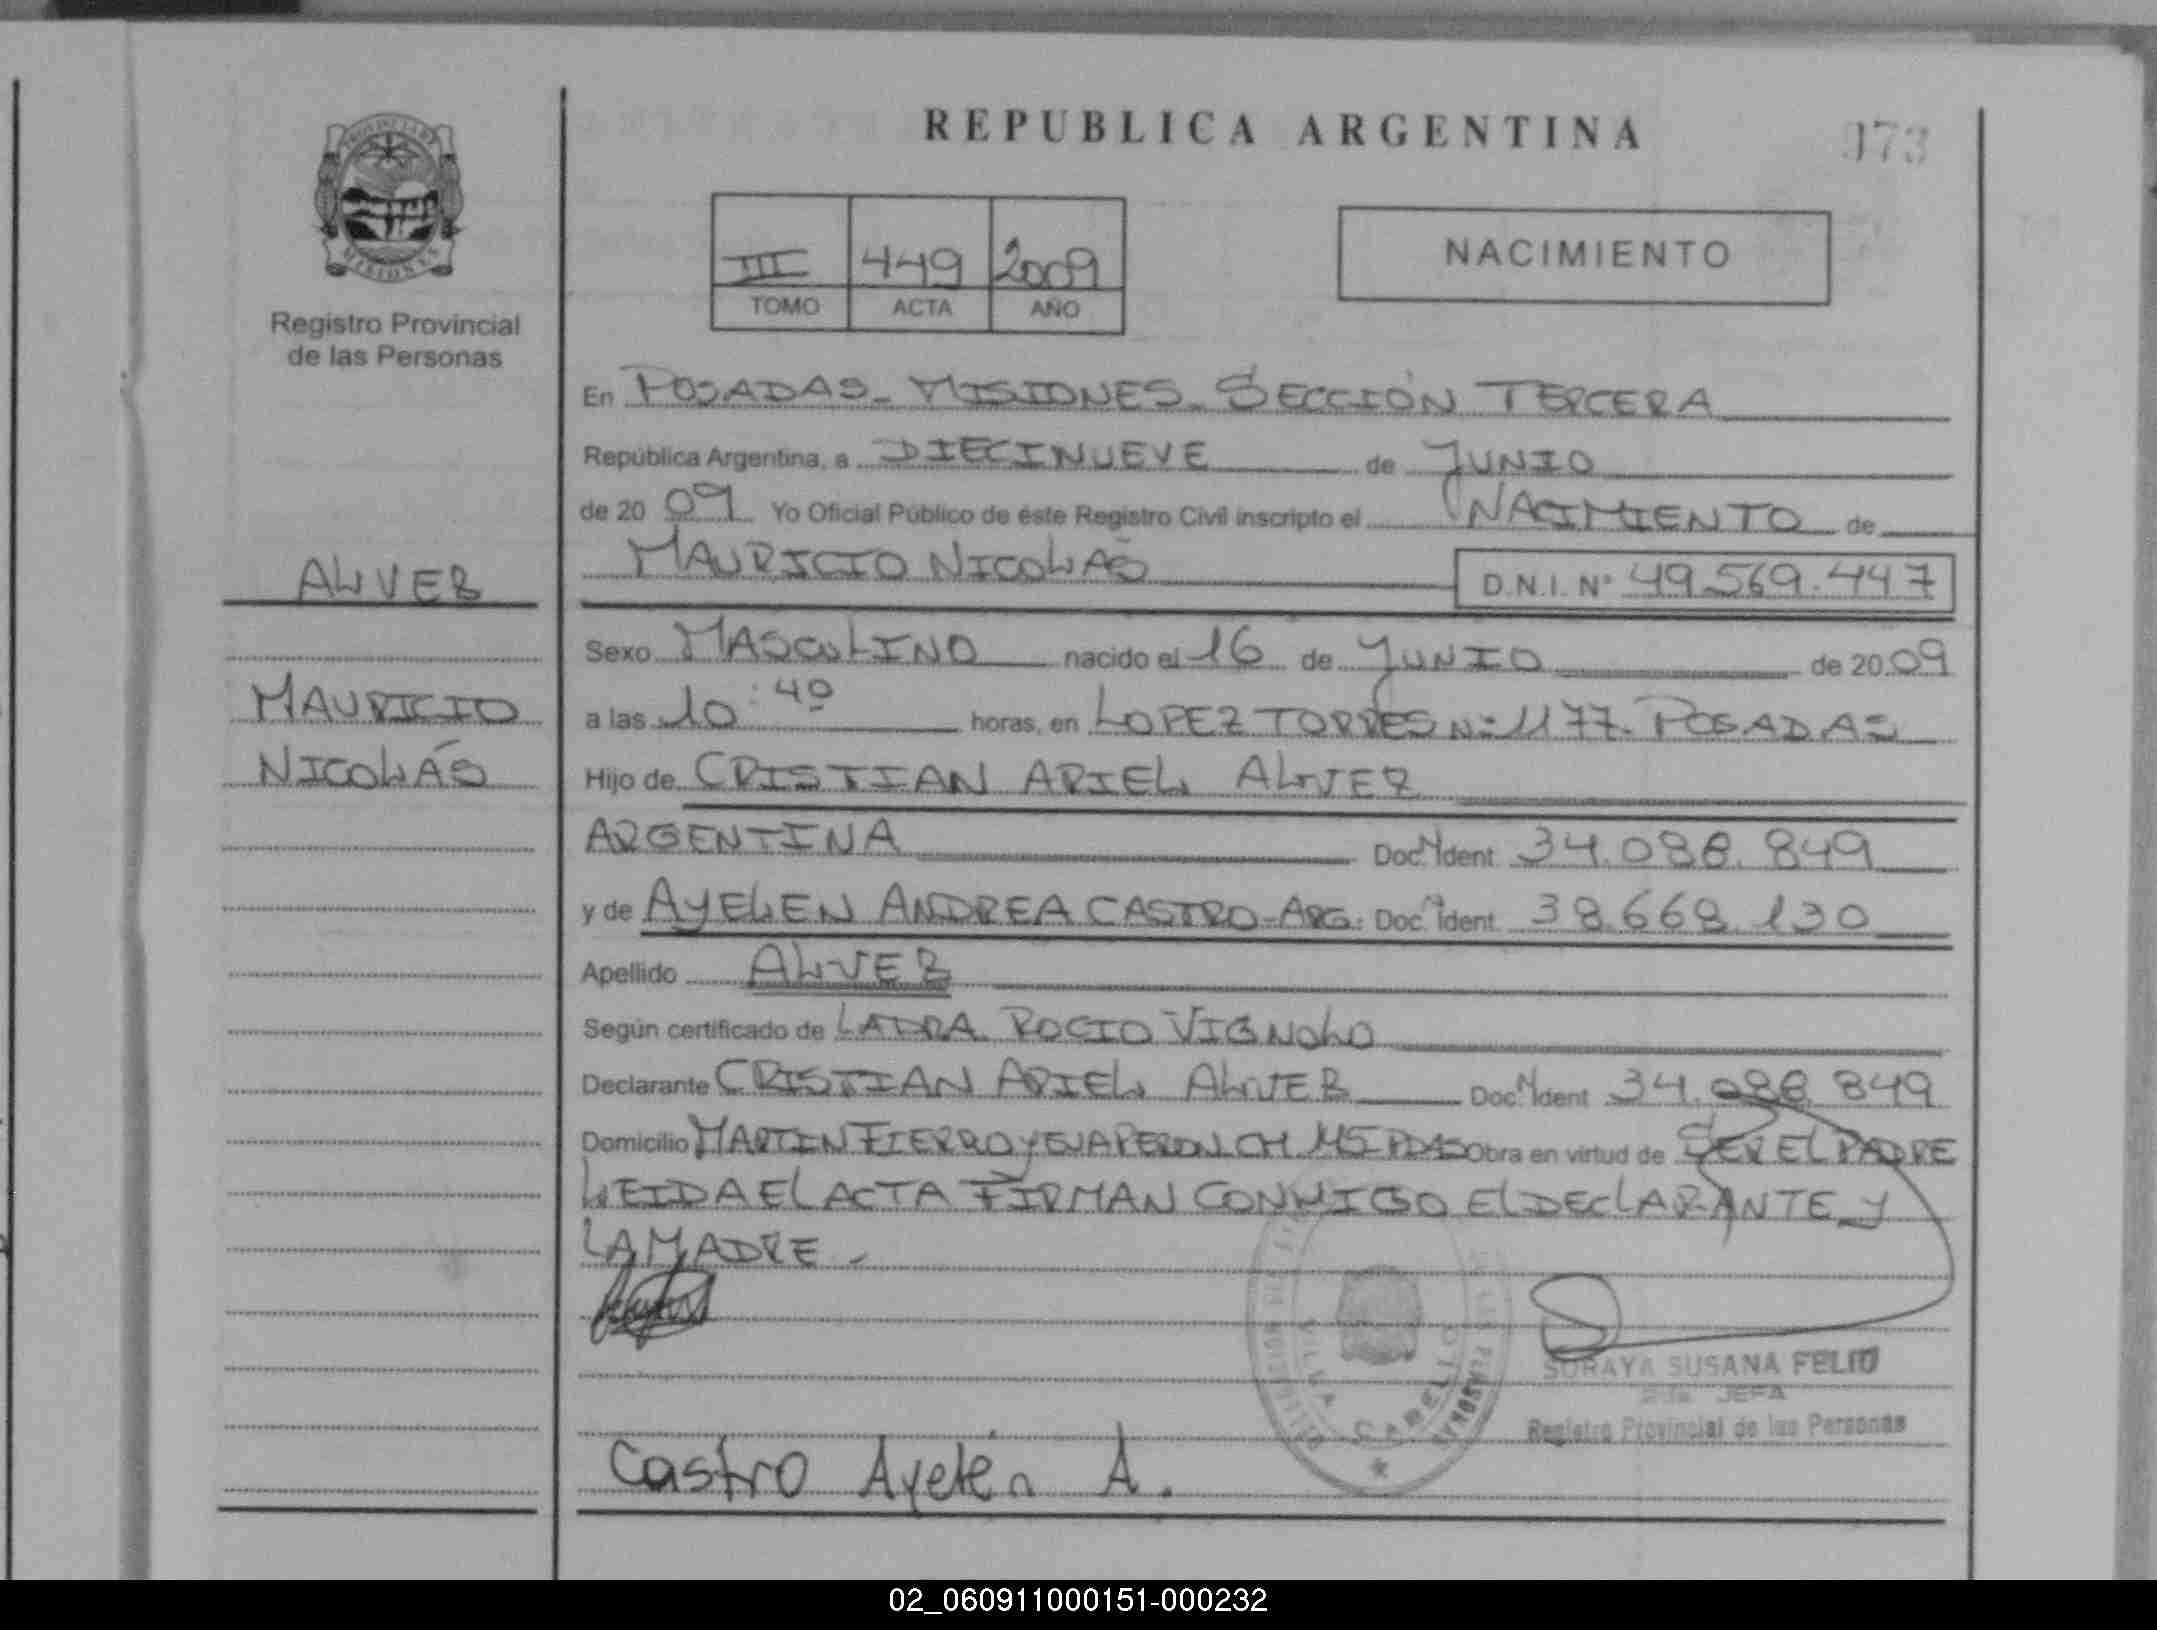 REPUBLICA ARGENTINA
173
PROVINCIA DE
MISIONES
Registro Provincial
de las Personas
III 449 2009
TOMO ACTA AÑO
NACIMIENTO
En POSADAS - MISIONES - SECCIÓN TERCERA
República Argentina, a DIECINUEVE de JUNIO
de 2009 Yo Oficial Público de éste Registro Civil inscripto el NACIMIENTO de
MAURICIO NICOLAS D.N.I. N° 49.569.447
ALVEZ
MAURICIO
NICOLÁS
Sexo MASCULINO nacido el 16 de JUNIO de 2009
a las 10:40 horas, en LOPEZ TORRES Nº 1177 - POSADAS
Hijo de CRISTIAN ARIEL ALVEZ
ARGENTINA Doc. Ident. 34.088.849
y de AYELEN ANDREA CASTRO - ARG. Doc. Ident. 38.668.130
Apellido ALVEZ
Según certificado de ROCIO VIGNOLO
Declarante CRISTIAN ARIEL ALVEZ Doc. Ident. 34.088.849
Domicilio MARTIN FIERRO y EVA PERON CH. PDAS Obra en virtud de SER EL PADRE
LEIDA EL ACTA FIRMAN CONMIGO EL DECLARANTE y
LA MADRE.
VILLA CABELLO
SORAYA SUSANA FELIU
JEFA
Registro Provincial de las Personas
Castro Ayelén A.
02_060911000151-000232